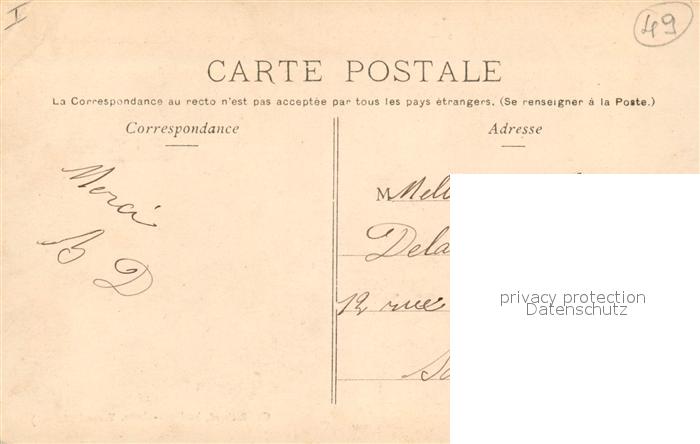 I
49
CARTE POSTALE
La Correspondance au recto n'est pas acceptée par tous les pays étrangers. (Se renseigner à la Poste.)
Correspondance
Adresse
Merci
B D
M
12 rue
privacy protection
Datenschutz